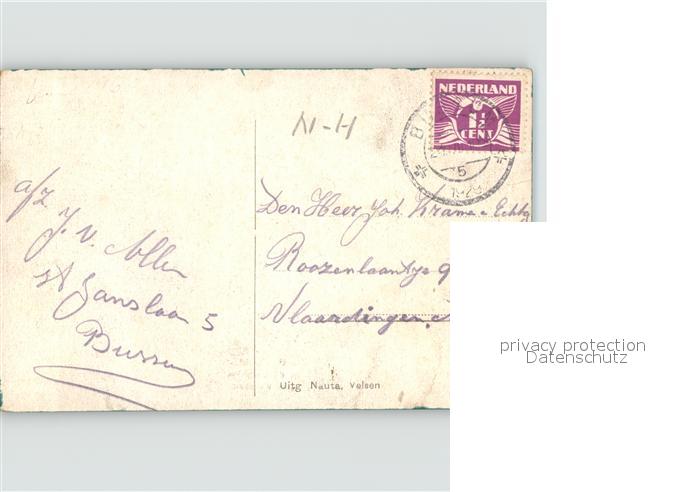 NEDERLAND
1½
CENT
5
1929
N-H
afz
J. v. Allen
St Janslaan 5
Bussum
Den Heer Joh. Kramer & Echtg
Roozenlaantje 9
Vlaardingen
Uitg Nauta, Velsen
privacy protection
Datenschutz